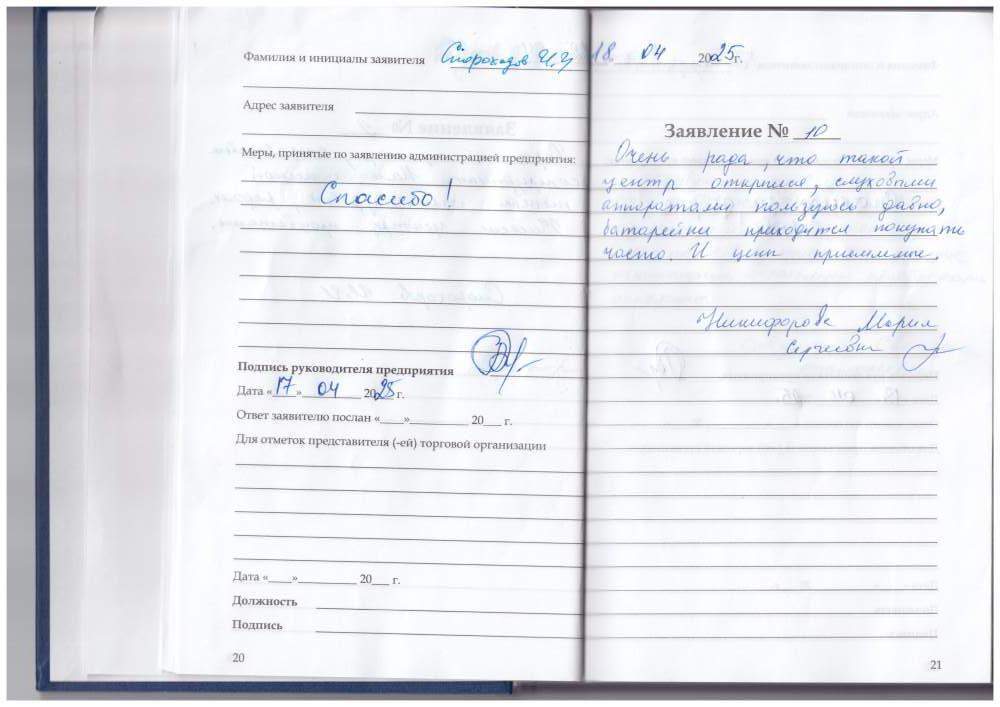 Фамилия и инициалы заявителя Скороходов И.И
Адрес заявителя
Меры, принятые по заявлению администрацией предприятия:
Спасибо!
Подпись руководителя предприятия
Дата «17» 04 2025 г.
Ответ заявителю послан «____»__________ 20___ г.
Для отметок представителя (-ей) торговой организации
Дата «____»__________ 20___ г.
Должность
Подпись
20
18 04 2025г.
Заявление № 10
Очень рада, что такой
центр открылся, слуховыми
аппаратами пользуюсь давно,
батарейки приходится покупать
часто. И цены приемлемые.
Никифорова Мария
Сергеевна
21